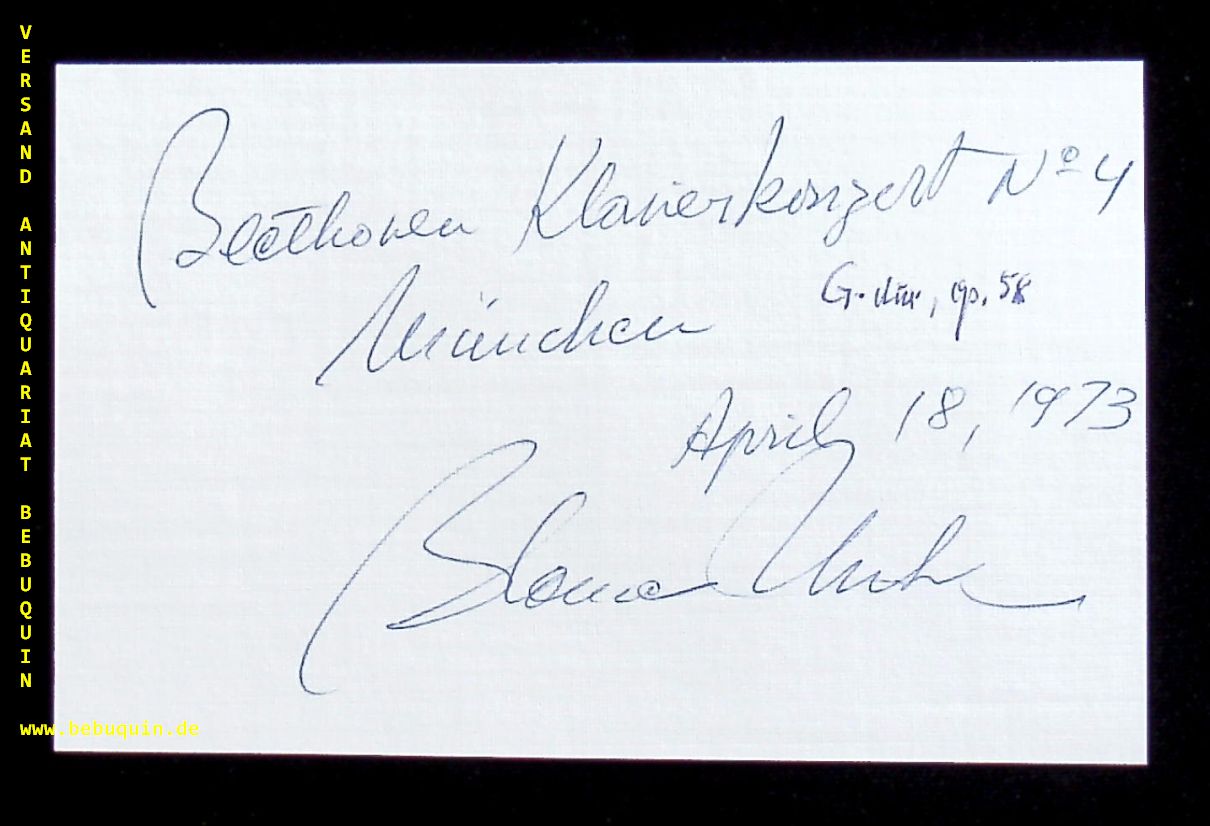 VERSAND ANTIQUARIAT BEBUQUIN
www.bebuquin.de
Beethoven Klavierkonzert Nº 4
G-dur, op. 58
München
April 18, 1973